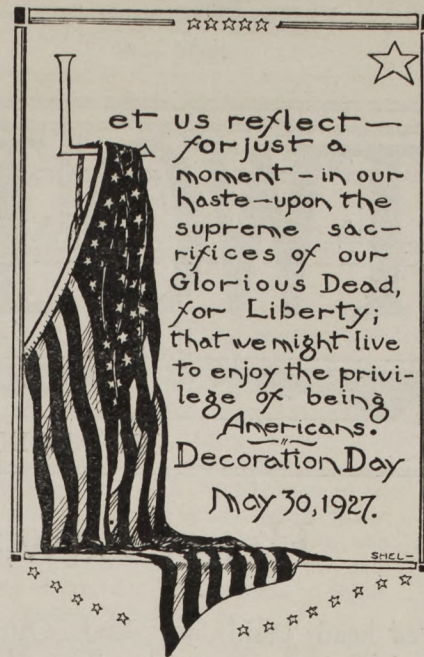 Let us reflect—
for just a
moment – in our
haste – upon the
supreme sac-
rifices of our
Glorious Dead,
for Liberty;
that we might live
to enjoy the privi-
lege of being
Americans.
Decoration Day
May 30, 1927.
SHEL-